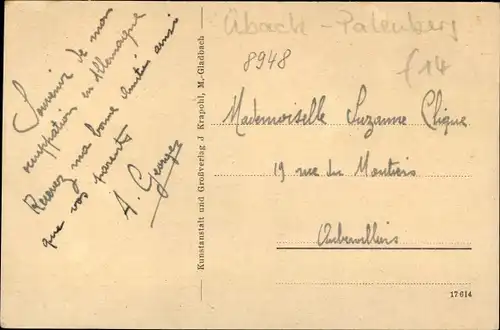 Souvenir de mon
occupation en Allemagne
Recevez ma bonne Amitié ainsi
que vos parents
A. Georges
Kunstanstalt und Großverlag J Krapohl, M.-Gladbach
Übach - Palenberg
8948
f 14
Mademoiselle Suzanne Clique
19 rue du Moutiers
Aubervilliers
17614